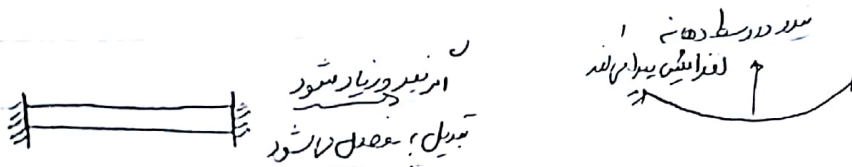 اگر نیرو زیاد شود
تبدیل به مفصل می‌شود
در وسط دهانه
افزایش پیدا می‌کند